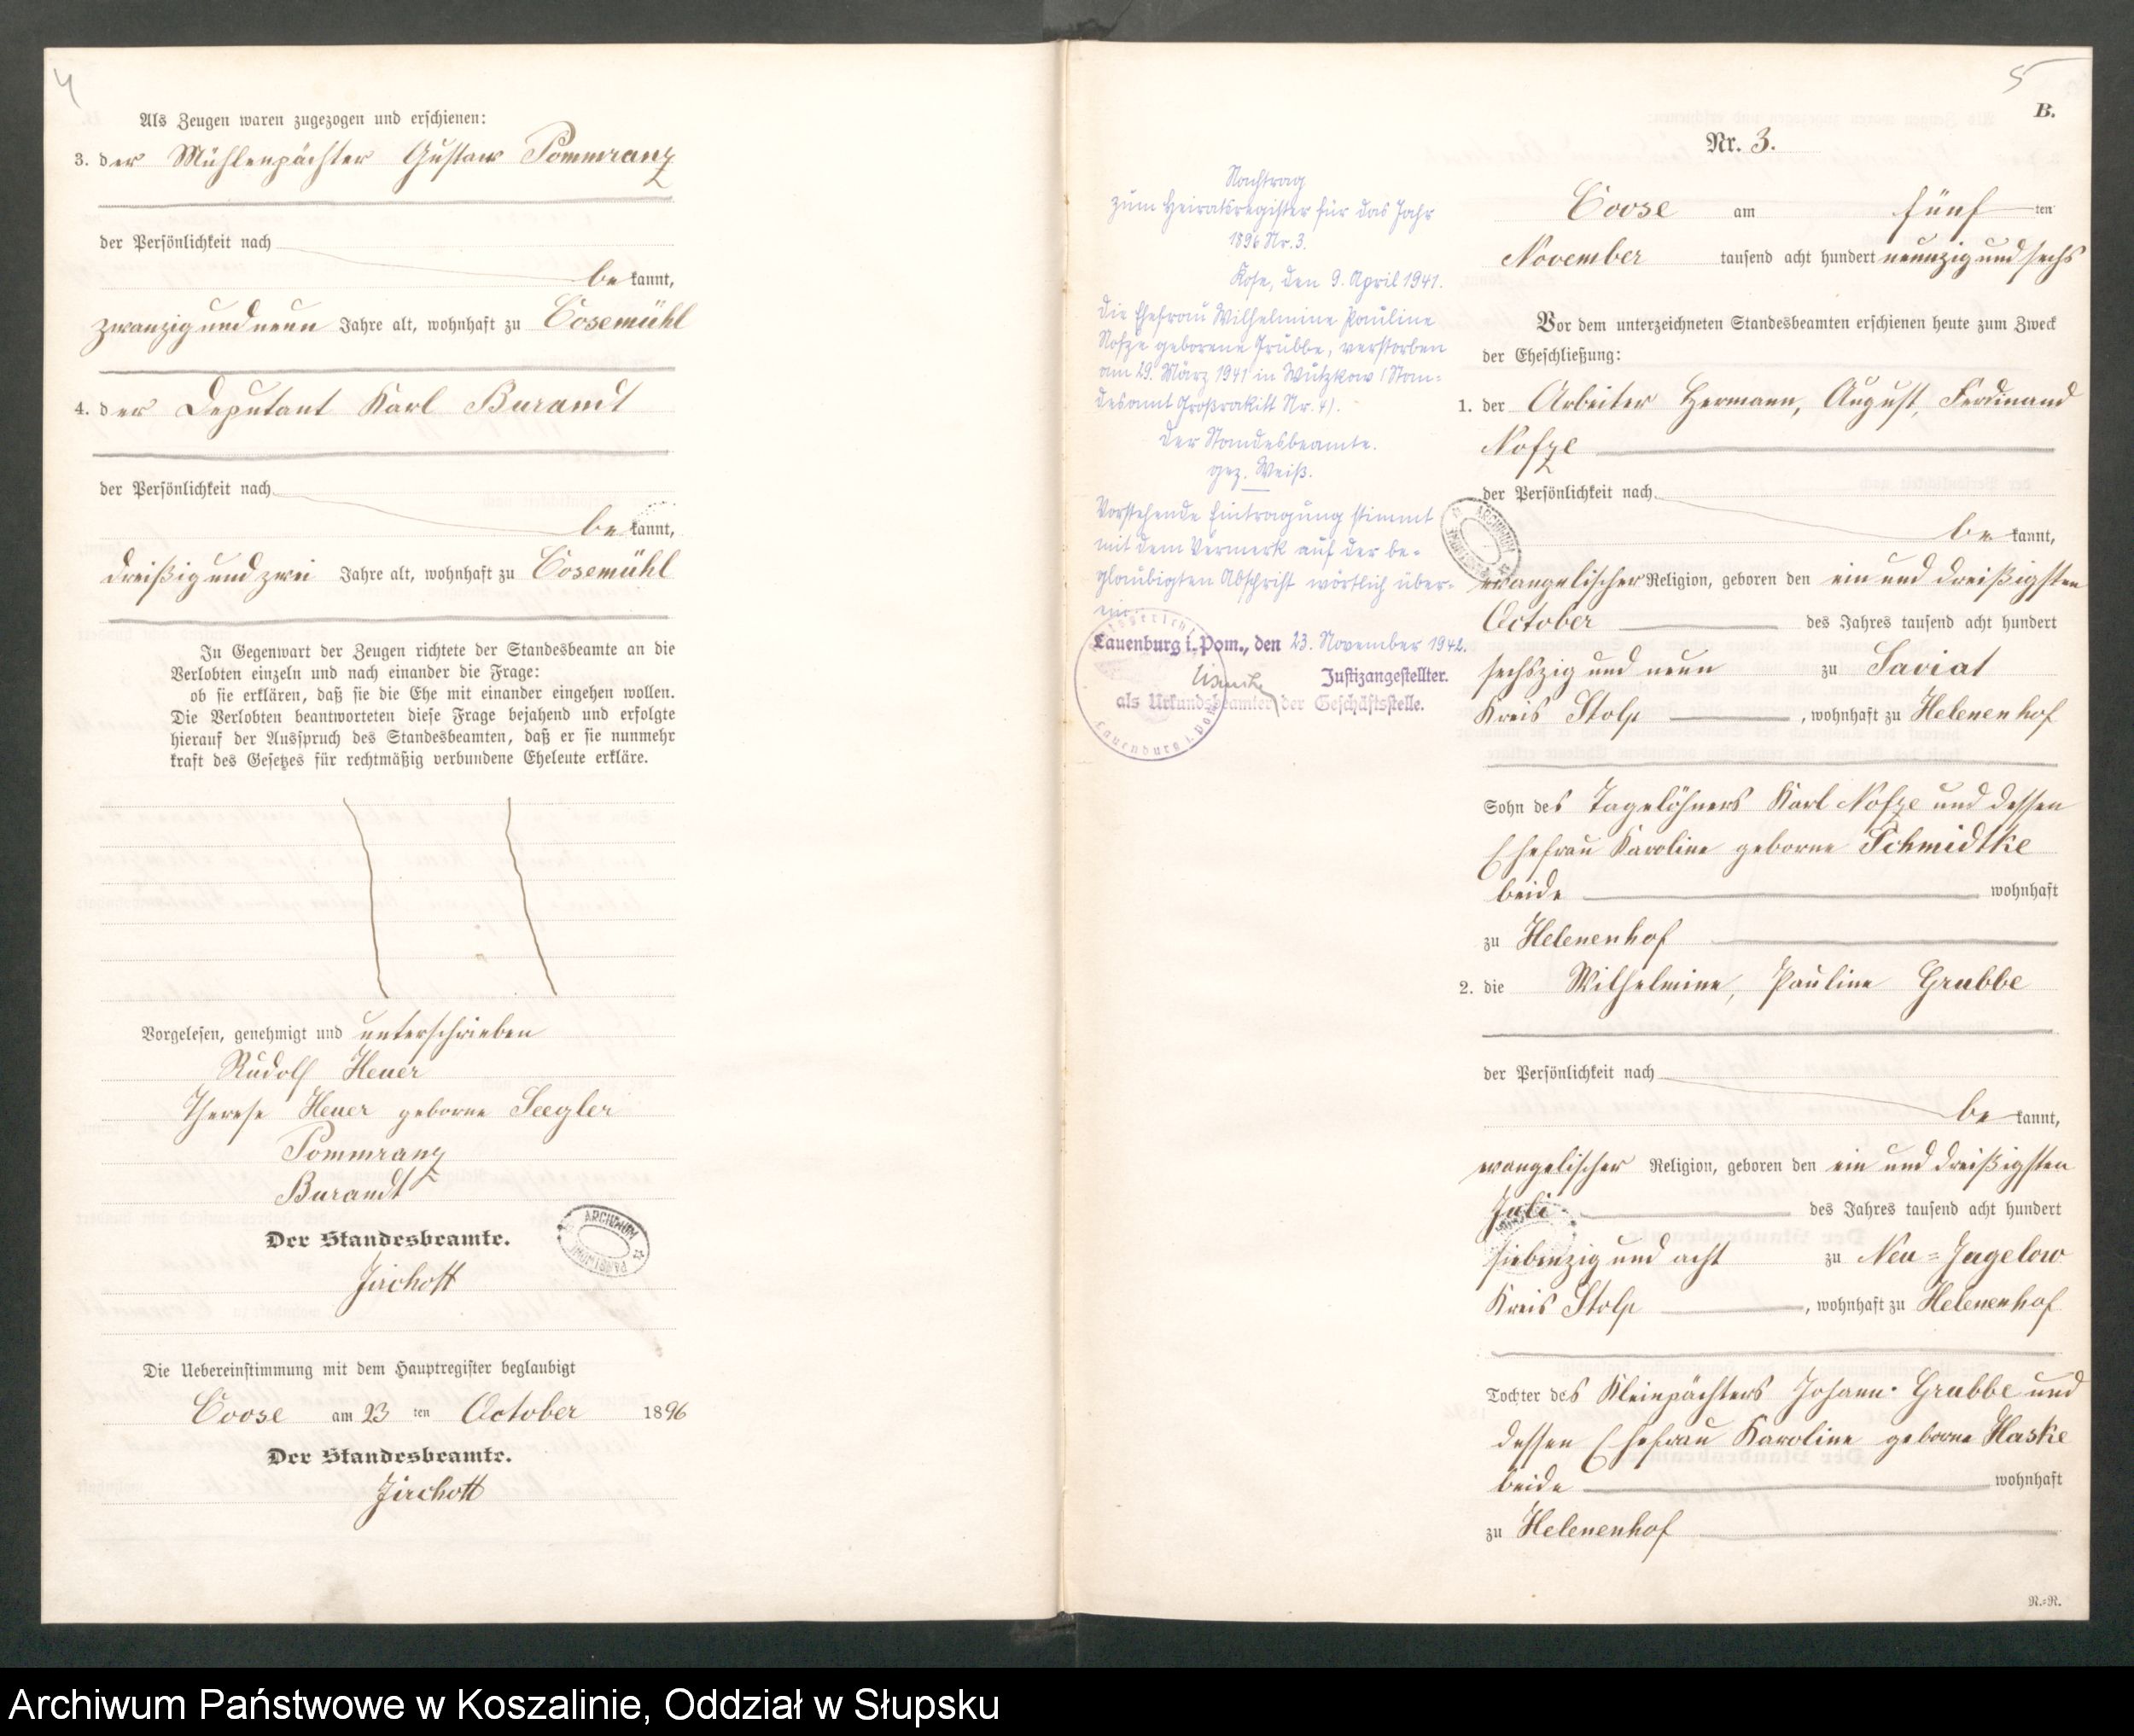 4
Als Zeugen waren zugezogen und erschienen:
3. der Mühlenpächter Gustav Pommranz
der Persönlichkeit nach
be kannt,
zwanzig und neun Jahre alt, wohnhaft zu Cosemühl
4. der Deputant Karl Burandt
der Persönlichkeit nach
be kannt,
dreißig und zwei Jahre alt, wohnhaft zu Cosemühl
In Gegenwart der Zeugen richtete der Standesbeamte an die
Verlobten einzeln und nach einander die Frage:
ob sie erklären, daß sie die Ehe mit einander eingehen wollen.
Die Verlobten beantworteten diese Frage bejahend und erfolgte
hierauf der Ausspruch des Standesbeamten, daß er sie nunmehr
kraft des Gesetzes für rechtmäßig verbundene Eheleute erkläre.
Vorgelesen, genehmigt und unterschrieben
Rudolf Heuer
Therese Heuer geborne Seegler
Pommranz
Burandt
Der Standesbeamte.
ARCHIWUM
PAŃSTWOWE
Die Uebereinstimmung mit dem Hauptregister beglaubigt
Coose am 23 ten October 1896
Der Standesbeamte.
5
B.
Nr. 3.
Nachtrag
zum Heiratsregister für das Jahr
1896 Nr. 3.
Kose, den 9. April 1941.
Die Ehefrau Wilhelmine Pauline
Nofze geborene Grubbe, verstorben
am 29. März 1941 in Wutzkow (Stan=
desamt Großrakitt Nr. 4).
Der Standesbeamte.
gez. Weiß.
Vorstehende Eintragung stimmt
mit dem Vermerk auf der be=
glaubigten Abschrift wörtlich über=
ein.
Lauenburg i. Pom., den 23. November 1942.
Justizangestellter.
als Urkundsbeamter der Geschäftsstelle.
Lauenburg i. Pom
Coose am fünf ten
November tausend acht hundert neunzig und sechs
Vor dem unterzeichneten Standesbeamten erschienen heute zum Zweck
der Eheschließung:
1. der Arbeiter Hermann, August, Ferdinand
Nofze
der Persönlichkeit nach
be kannt,
ARCHIWUM
evangelischer Religion, geboren den ein und dreißigsten
October des Jahres tausend acht hundert
sechszig und neun zu Saviat
Kreis Stolp, wohnhaft zu Helenenhof
Sohn des Tagelöhners Karl Nofze und dessen
Ehefrau Karoline geborne Schmidtke
beide wohnhaft
zu Helenenhof
2. die Wilhelmine, Pauline Grubbe
der Persönlichkeit nach
be kannt,
evangelischer Religion, geboren den ein und dreißigsten
Juli des Jahres tausend acht hundert
siebenzig und acht zu Neu=Jugelow
Kreis Stolp, wohnhaft zu Helenenhof
Tochter des Kleinpächters Johann Grubbe und
dessen Ehefrau Karoline geborne Haske
beide wohnhaft
zu Helenenhof
R.=R.
Archiwum Państwowe w Koszalinie, Oddział w Słupsku